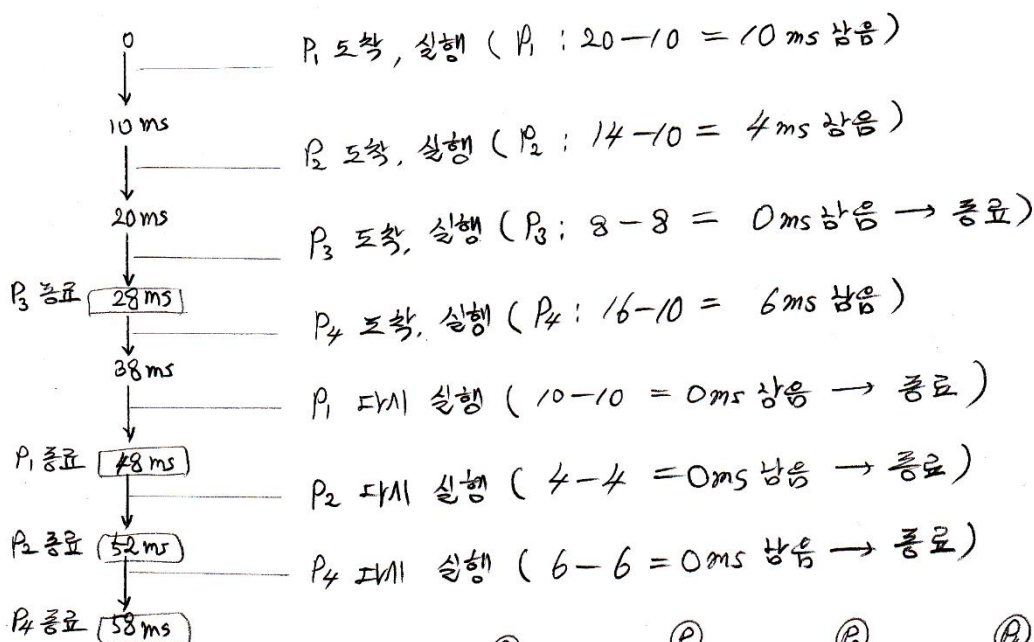 0
P₁ 도착, 실행 ( P₁ : 20-10 = 10 ms 남음 )
10 ms
P₂ 도착, 실행 ( P₂ : 14-10 = 4 ms 남음 )
20 ms
P₃ 도착, 실행 ( P₃ : 8-8 = 0 ms 남음 → 종료 )
P₃ 종료 28 ms
P₄ 도착, 실행 ( P₄ : 16-10 = 6 ms 남음 )
38 ms
P₁ 다시 실행 ( 10-10 = 0 ms 남음 → 종료 )
P₁ 종료 48 ms
P₂ 다시 실행 ( 4-4 = 0 ms 남음 → 종료 )
P₂ 종료 52 ms
P₄ 다시 실행 ( 6-6 = 0 ms 남음 → 종료 )
P₄ 종료 58 ms